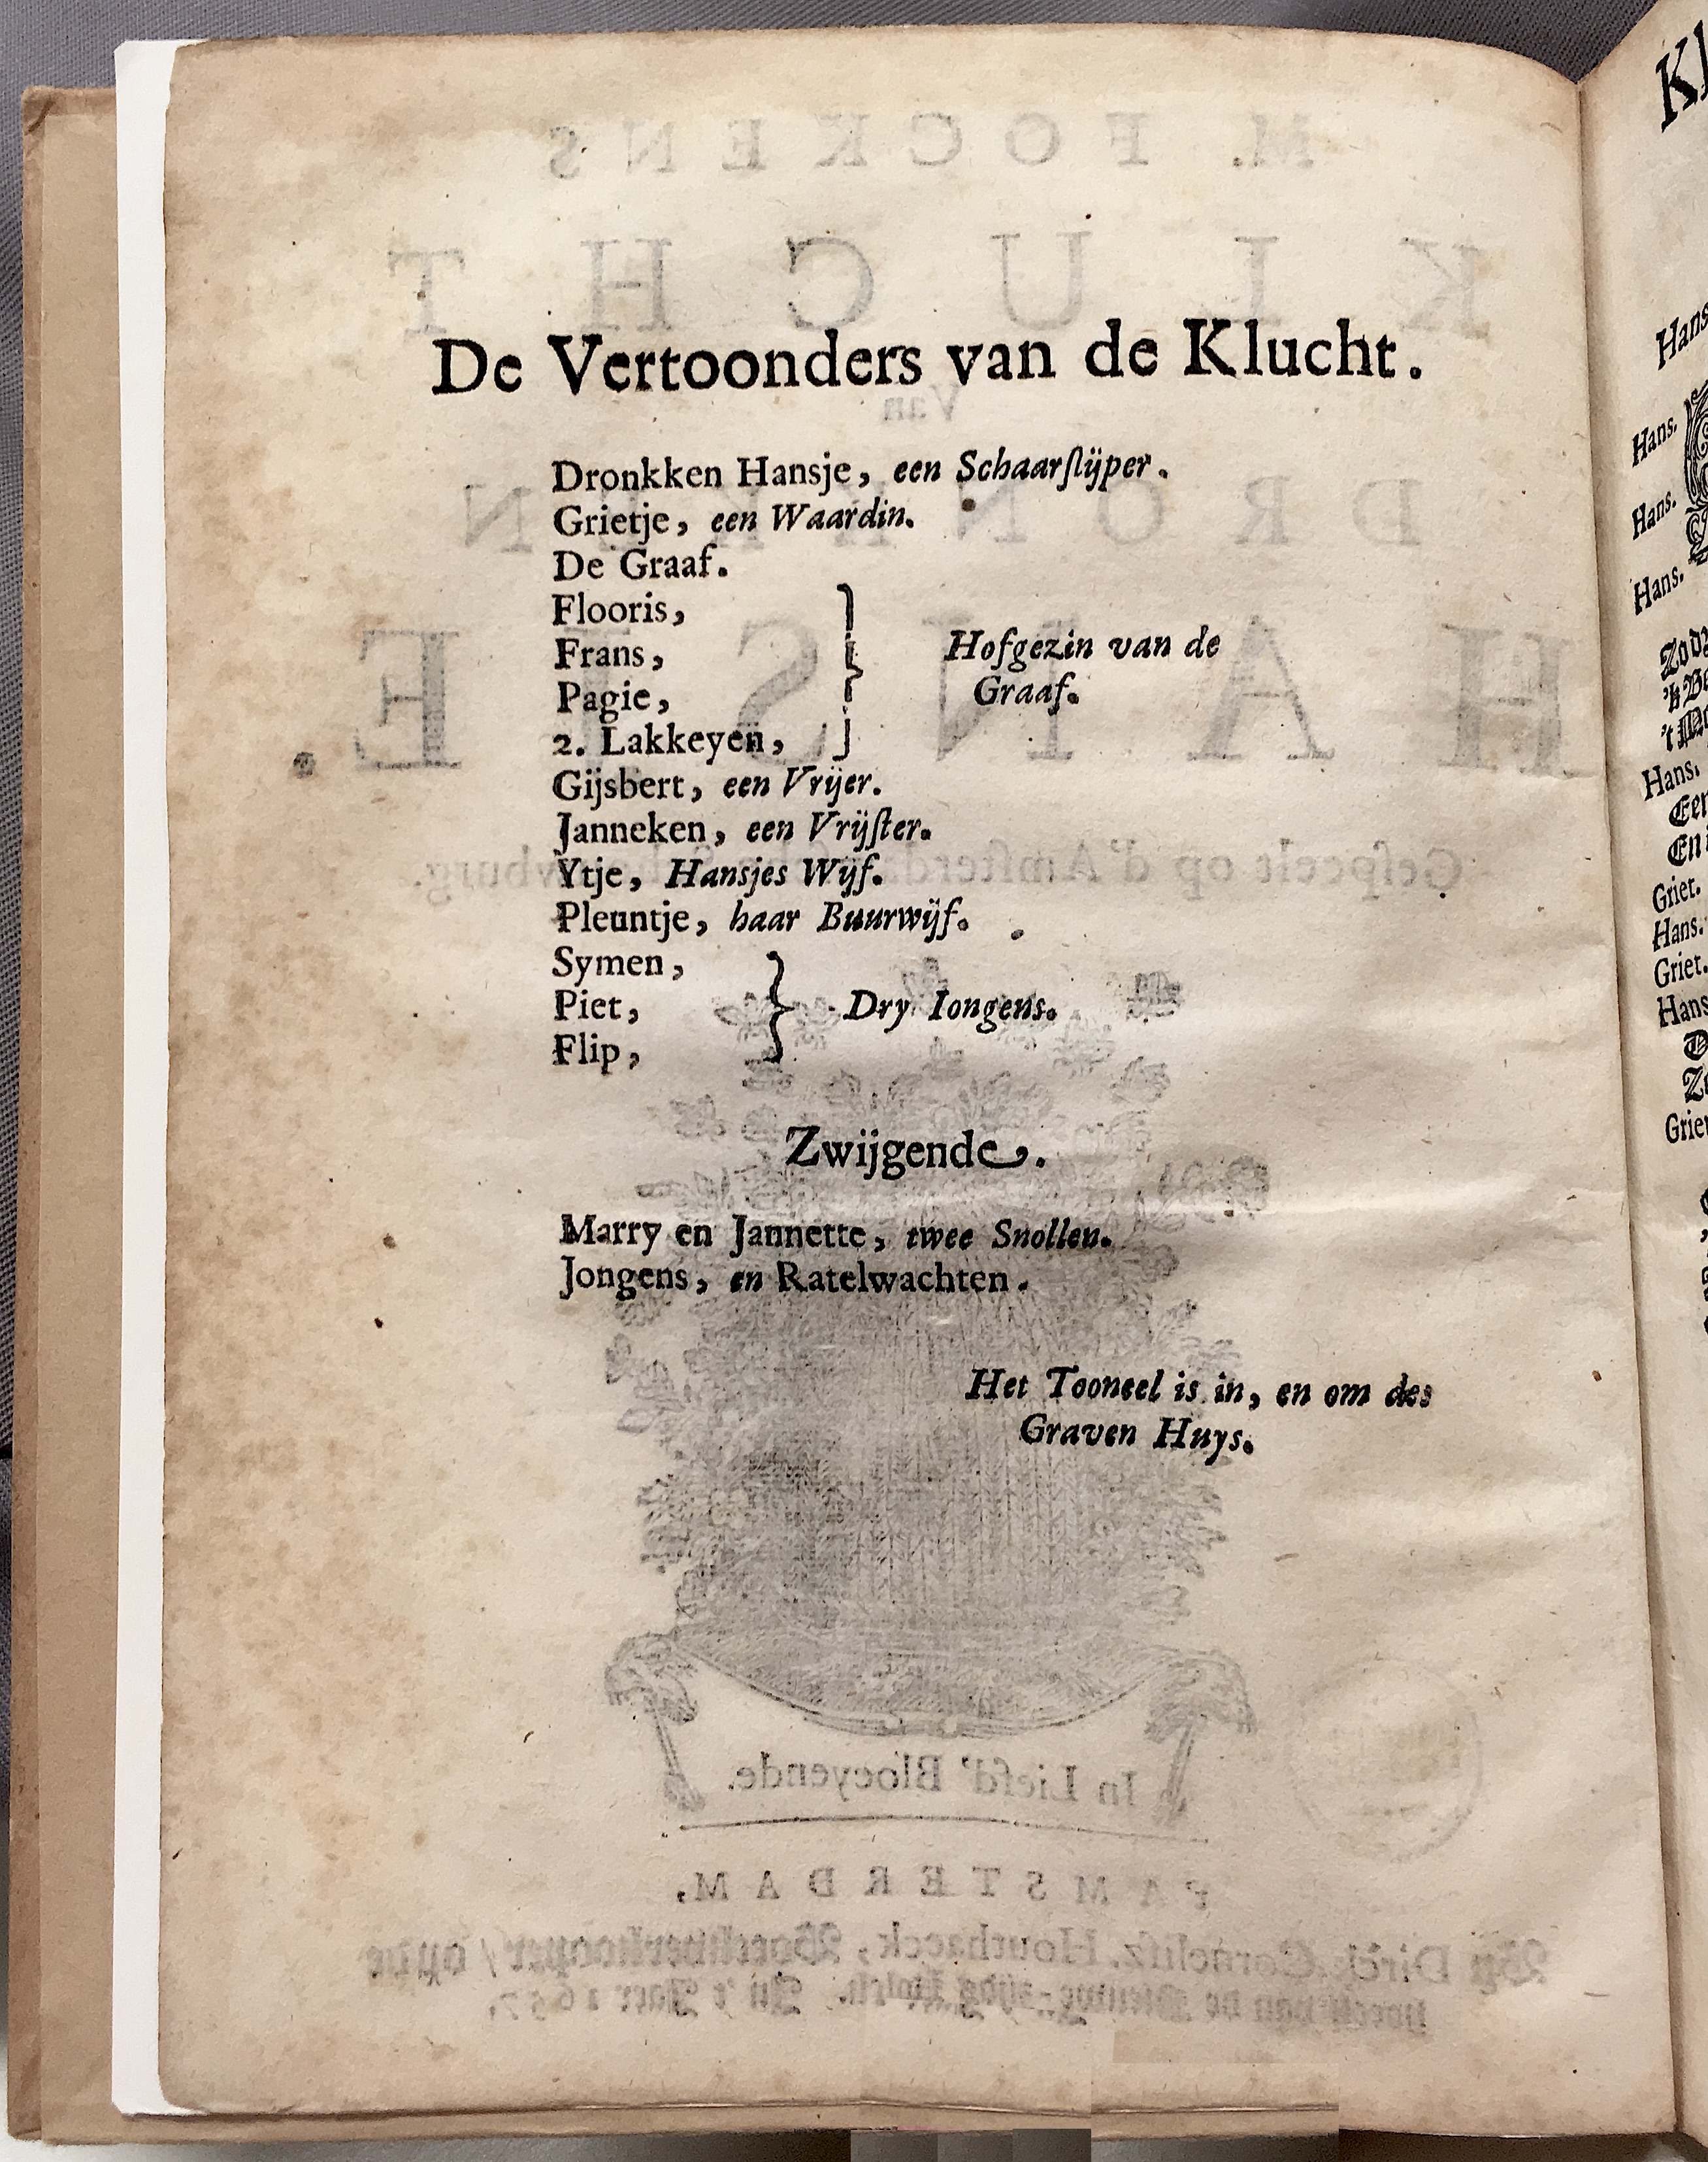 De Vertoonders van de Klucht.
Dronkken Hansje, een Schaarſlijper.
Grietje, een Waardin.
De Graaf.
Flooris,
Frans,
Pagie,
2. Lakkeyen,
Hofgezin van de
Graaf.
Gijsbert, een Vrijer.
Janneken, een Vrijſter.
Ytje, Hansjes Wijf.
Pleuntje, haar Buurwijf.
Symen,
Piet,
Flip,
Dry Iongens.
Zwijgende.
Marry en Jannette, twee Snollen.
Jongens, en Ratelwachten.
Het Tooneel is in, en om des
Graven Huys.
Hans.
Hans.
Hans.
Hans.
Griet.
Hans.
Griet.